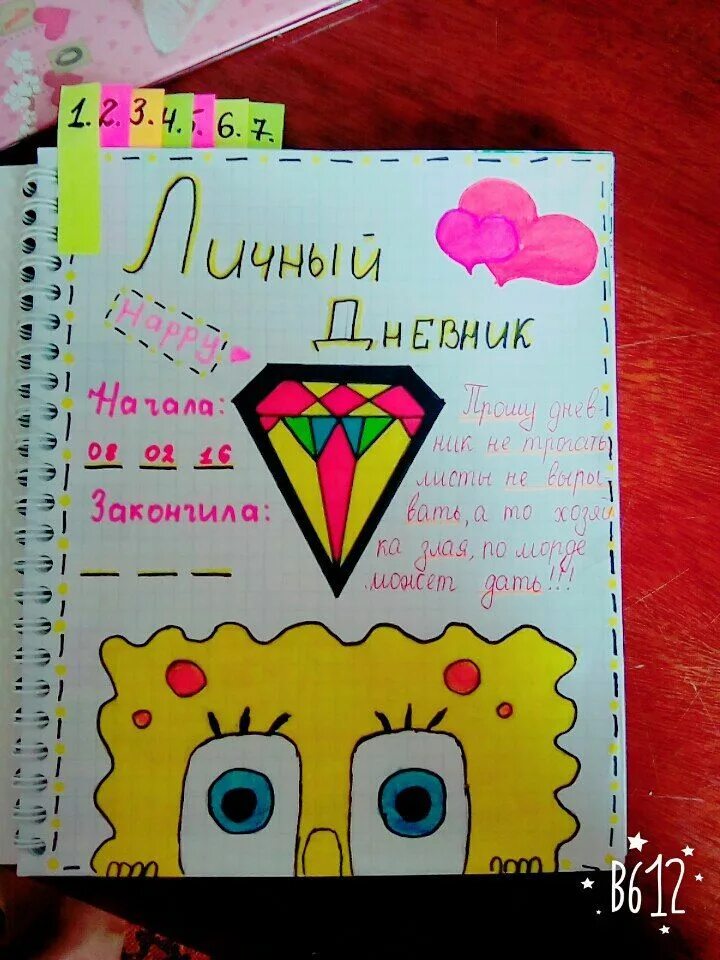 1. 2. 3. 4. 6. 7.
Личный
Дневник
Happy
Начала:
08 02 16
Закончила:
Прошу днев-
ник не трогать
листы не выры-
вать, а то хозяй
ка злая, по морде
может дать!!!
B612